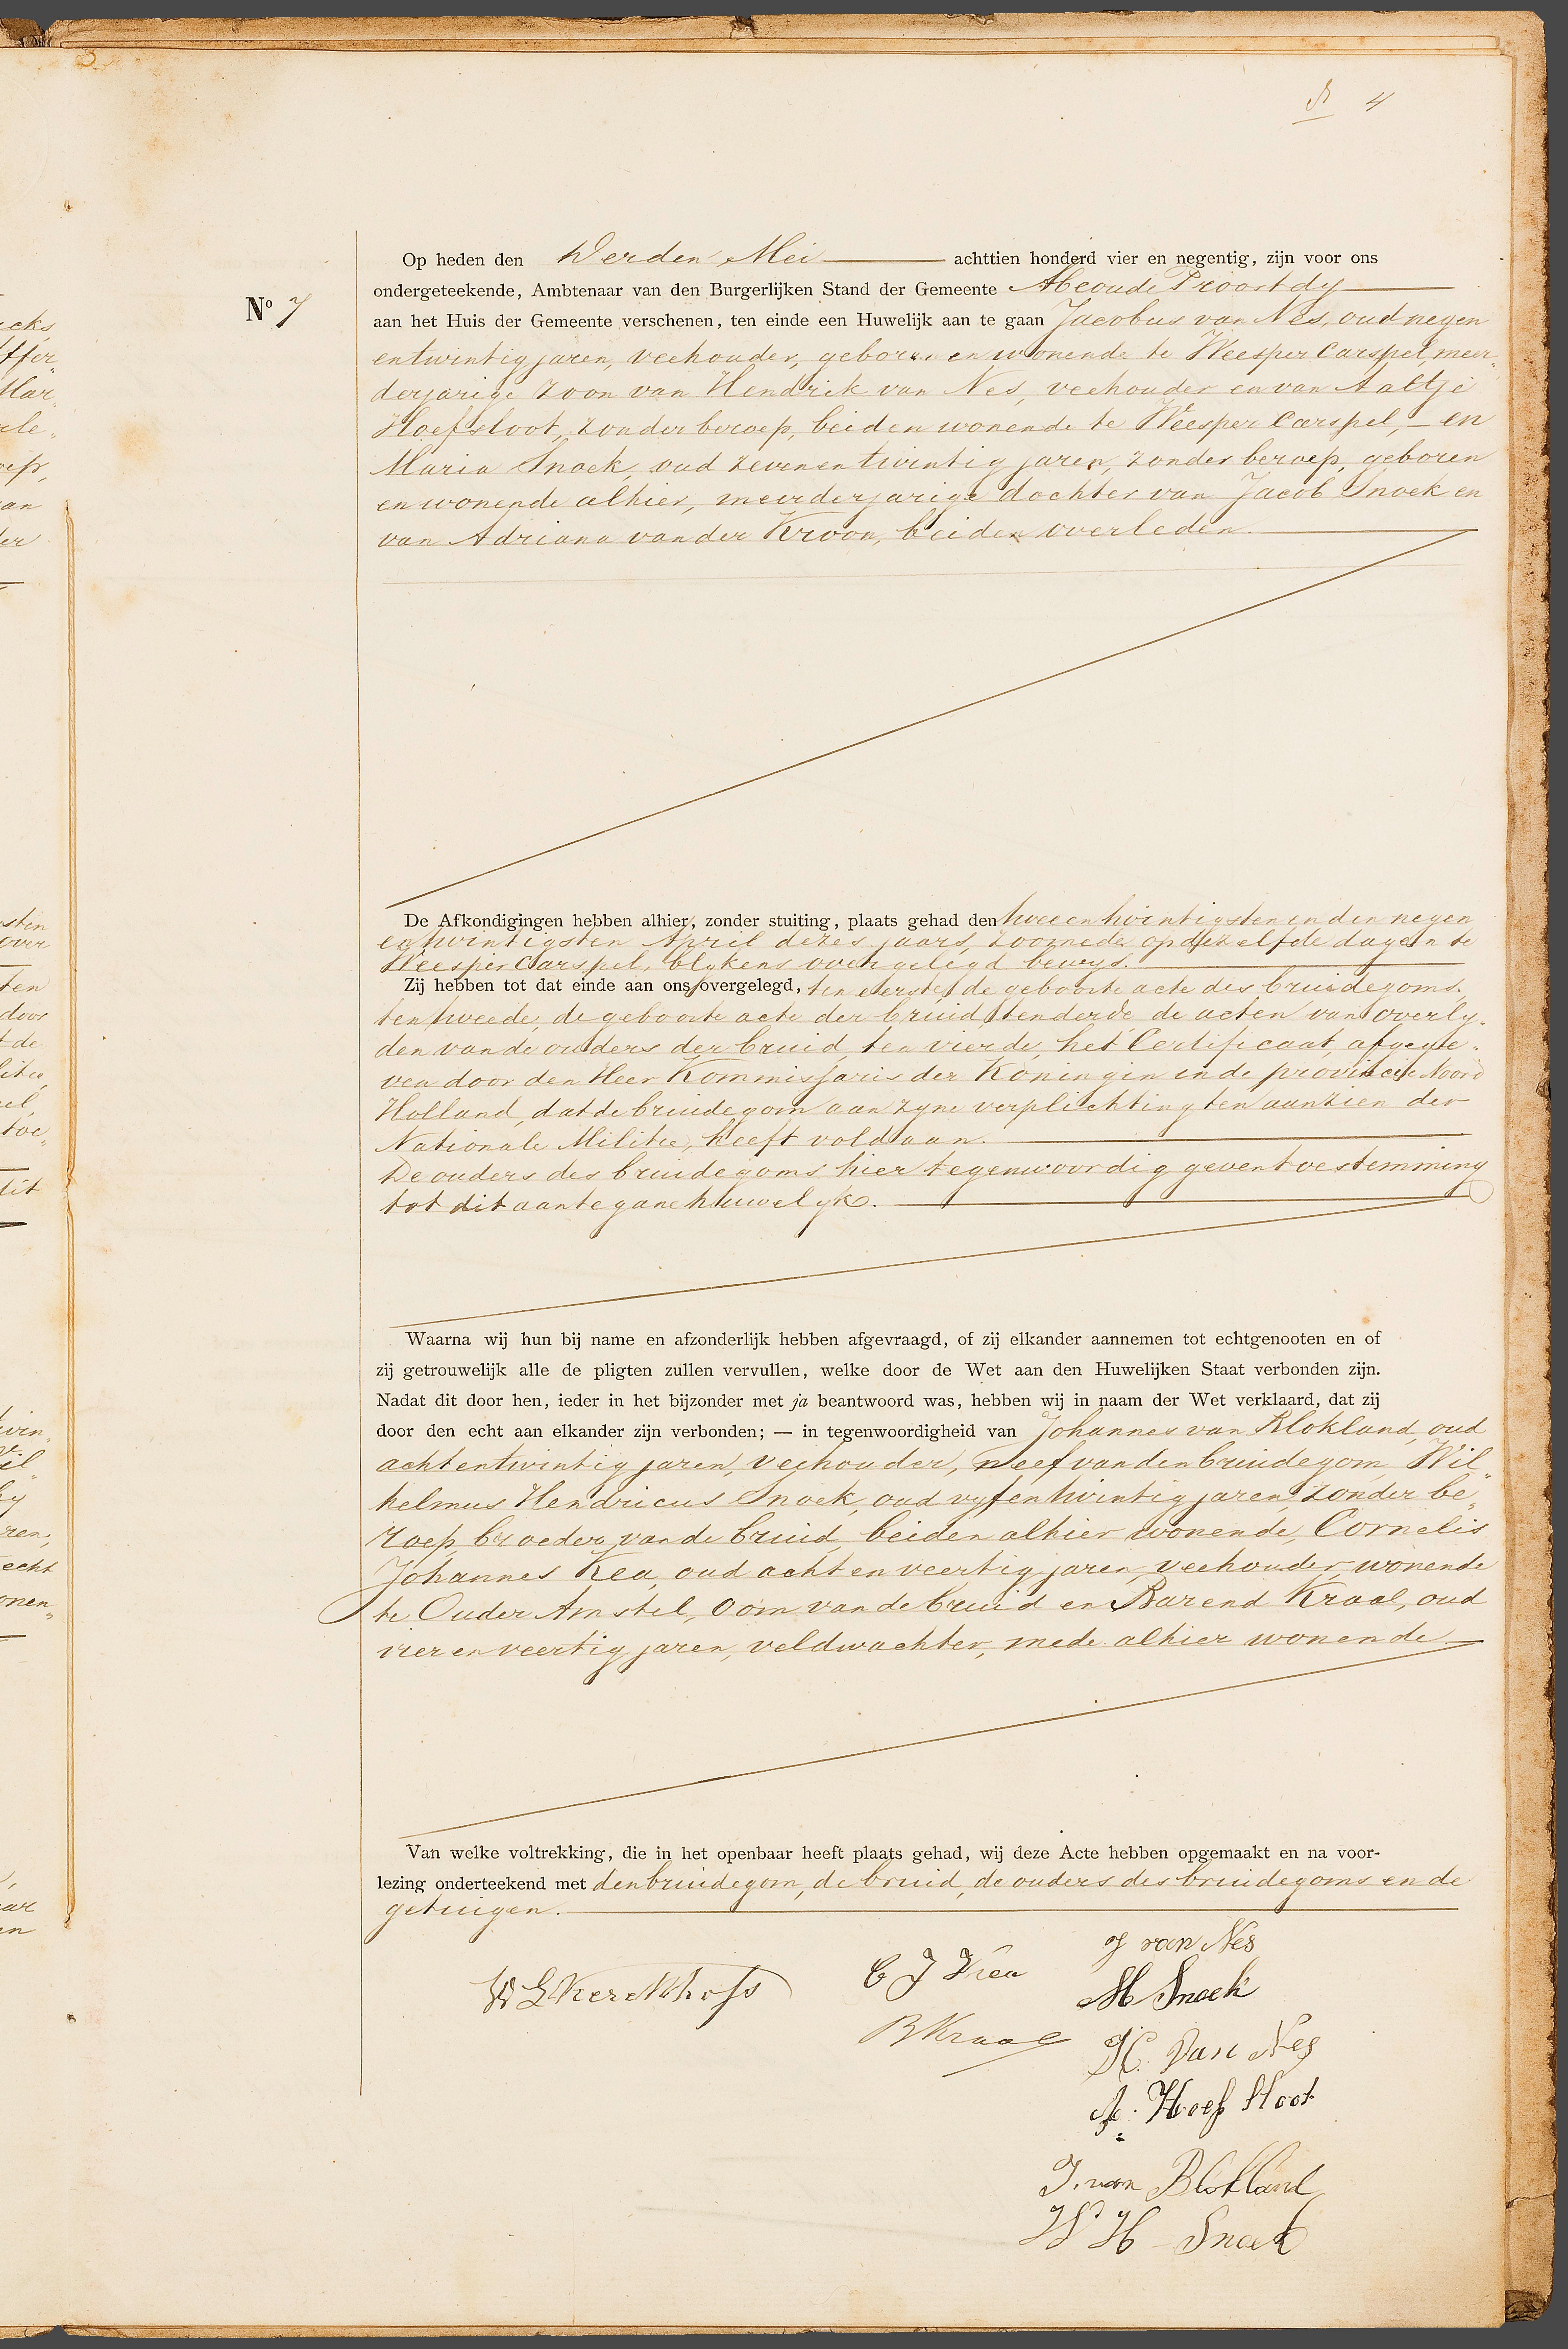 4
Op heden den derden Mei achttien honderd vier en negentig, zijn voor ons
Nº 7
ondergeteekende, Ambtenaar van den Burgerlijken Stand der Gemeente Abcoude Proostdy
aan het Huis der Gemeente verschenen, ten einde een Huwelijk aan te gaan Jacobus van Nes, oud negen
entwintig jaren, veehouder, geboren en wonende te Weespercarspel, meer„
derjarige zoon van Hendrik van Nes, veehouder en van Aaltje
Hoefsloot, zonder beroep, beiden wonende te Weespercarspel, — en
Maria Snoek, oud zeven en twintig jaren, zonder beroep, geboren
en wonende alhier, meerderjarige dochter van Jacob Snoek en
van Adriana van der Kroon, beiden overleden.
De Afkondigingen hebben alhier, zonder stuiting, plaats gehad den twee en twintigsten en den negen
en twintigsten April dezes jaars, zoomede op dezelfde dagen te
Weespercarspel, blykens overgelegd bewys.
Zij hebben tot dat einde aan ons overgelegd, ten eerste, de geboorte acte des bruidegoms.
ten tweede, de geboorte acte der bruid, ten derde de acten van overly„
den van de ouders der bruid, ten vierde, het Certificaat, afgege„
ven door den Heer Kommissaris der Koningin in de provincie Noord
Holland, dat de bruidegom aan zyne verplichting ten aanzien der
Nationale Militie, heeft voldaan.
De ouders des bruidegoms hier tegenwoordig geven toestemming
tot dit aantegane huwelyk.
Waarna wij hun bij name en afzonderlijk hebben afgevraagd, of zij elkander aannemen tot echtgenooten en of
zij getrouwelijk alle de pligten zullen vervullen, welke door de Wet aan den Huwelijken Staat verbonden zijn.
Nadat dit door hen, ieder in het bijzonder met ja beantwoord was, hebben wij in naam der Wet verklaard, dat zij
door den echt aan elkander zijn verbonden; — in tegenwoordigheid van Johannes van Blokland, oud
achtentwintig jaren, veehouder, neef van den bruidegom, Wil„
helmus Hendricus Snoek, oud vyfentwintig jaren, zonder be„
roep, broeder van de bruid, beiden alhier wonende, Cornelis
Johannes Kea, oud acht en veertig jaren, veehouder, wonende
te Ouder Amstel, oom van de bruid en Barend Kraal, oud
vier en veertig jaren, veldwachter, mede alhier wonende
Van welke voltrekking, die in het openbaar heeft plaats gehad, wij deze Acte hebben opgemaakt en na voor-
lezing onderteekend met den bruidegom, de bruid, de ouders des bruidegoms en de
getuigen.
J van Nes
C J Kea
M Snoek
B Kraal
H. Van Nes
A. Hoefsloot
J. van Blokland
W H Snoek